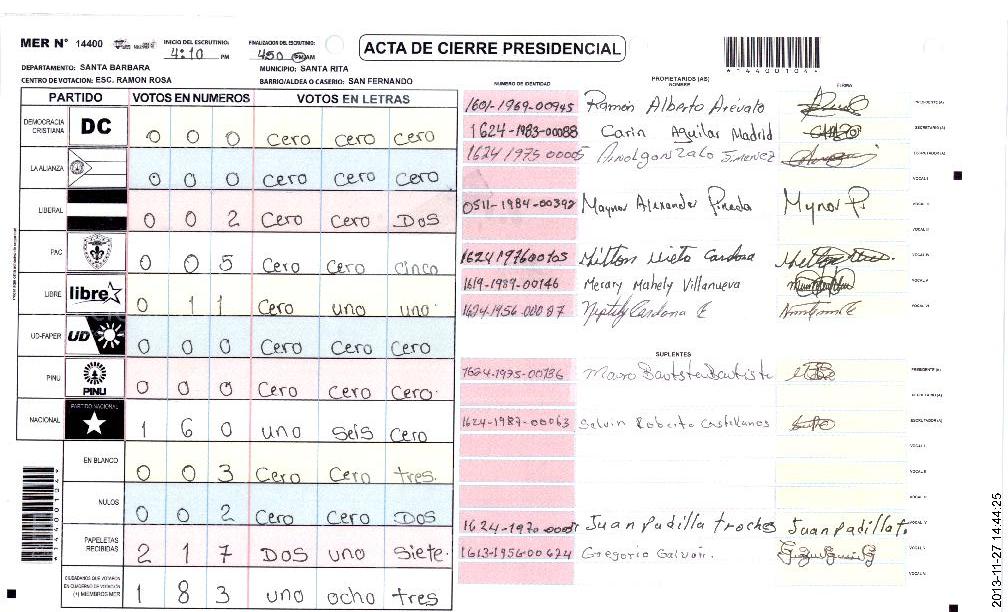 MER N° 14400
INICIO DEL ESCRUTINIO:
4:10 PM
FINALIZACION DEL ESCRUTINIO:
450 PM AM
ACTA DE CIERRE PRESIDENCIAL
*14400104*
DEPARTAMENTO: SANTA BARBARA
MUNICIPIO: SANTA RITA
CENTRO DE VOTACION: ESC. RAMON ROSA
BARRIO/ALDEA O CASERIO: SAN FERNANDO
PARTIDO VOTOS EN NUMEROS VOTOS EN LETRAS
DEMOCRACIA CRISTIANA DC 0 0 0 cero cero cero
LA ALIANZA 0 0 0 cero cero cero
LIBERAL 0 0 2 cero cero Dos
PAC 0 0 5 cero cero cinco
LIBRE libre 0 1 1 Cero uno uno
UD-FAPER UD 0 0 0 Cero Cero Cero
PINU PINU 0 0 0 Cero Cero Cero
NACIONAL PARTIDO NACIONAL 1 6 0 uno seis cero
EN BLANCO 0 0 3 Cero Cero tres.
NULOS 0 0 2 Cero Cero Dos
PAPELETAS RECIBIDAS 2 1 7 Dos uno siete
CIUDADANOS QUE VOTARON EN CUADERNO DE VOTACION (+) MIEMBROS MER 1 8 3 uno ocho tres
NUMERO DE IDENTIDAD PROPIETARIOS (AS) NOMBRE FIRMA
1601-1969-00945 Ramón Alberto Arévalo PRESIDENTE (A)
1624-1983-00088 Carin Aguilar Madrid SECRETARIO (A)
1624 1975 00005 ESCRUTADOR (A)
VOCAL I
0511-1984-00392 Maynor Alexander Pineda Mynor P. VOCAL II
VOCAL III
1624197600105 Milton Nieto Cardona VOCAL IV
1619-1989-00146 Merary Mahely Villanueva VOCAL V
1624-1956-00087 Cardona E VOCAL VI
SUPLENTES
1624-1975-00136 Mauro Bautista Bautista PRESIDENTE (A)
SECRETARIO (A)
1624-1987-00063 Selvin Roberto Castellanos ESCRUTADOR (A)
VOCAL I
VOCAL II
VOCAL III
1624-1970 Juan Padilla troches Juan padilla t. VOCAL IV
1613-1956-00624 Gregorio Galvan. VOCAL V
VOCAL VI
*14400104*
2013-11-27 14:44:25